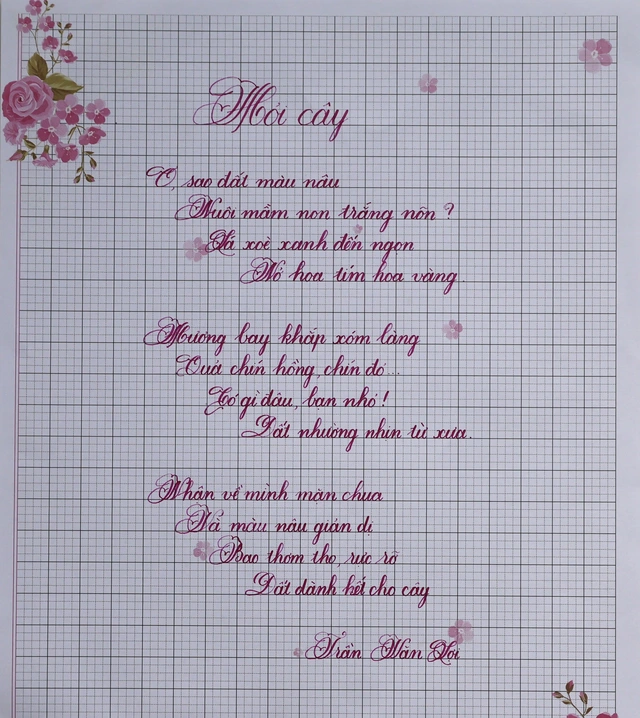 Mới cây
Ơ, sao đất màu nâu
Nuôi mầm non trắng nõn ?
Lá xoè xanh đến ngọn
Nở hoa tím hoa vàng.
Hương bay khắp xóm làng
Quả chín hồng, chín đỏ...
Có gì đâu, bạn nhỏ !
Đất nhường nhịn từ xưa.
Nhận về mình mặn chua
Cả màu nâu giản dị
Bao thơm tho, rực rỡ
Đất dành hết cho cây
Trần Văn Lợi